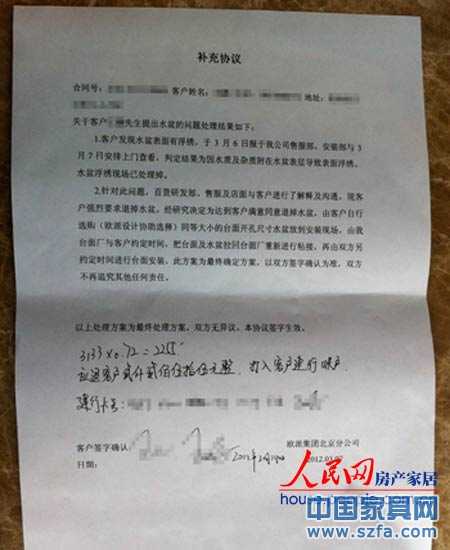 补充协议
合同号: 客户姓名: 地址:
关于客户 先生提出水盆的问题处理结果如下:
1.客户发现水盆表面有浮锈,于 3 月 6 日报于我公司售服部,安装部与 3
月 7 日安排上门查看,判定结果为因水质及杂质附在水盆表层导致表面浮锈,
水盆浮锈现场已处理掉。
2.针对此问题,百货研发部、售服及店面与客户进行了解释及沟通,现客
户强烈要求退掉水盆,经研究决定为达到客户满意同意退掉水盆,由客户自行
选购(欧派设计协助选择)同等大小的台面开孔尺寸水盆放到安装现场,由我
台面厂与客户约定时间,把台面及水盆拉回台面厂重新进行粘接,再由双方另
约定时间进行台面安装。此方案为最终确定方案,以双方签字确认为准,双方
不再追究其他任何责任。
以上处理方案为最终处理方案,双方无异议。本协议签字生效。
3133×0.72=2255
应退客户贰仟贰佰伍拾伍元整,打入客户建行帐户.
建行卡号:
客户签字确认: 欧派集团北京分公司
日期: 2012年3月 2012.03.07
人民网 房产家居
中国家具网
www.szfa.com